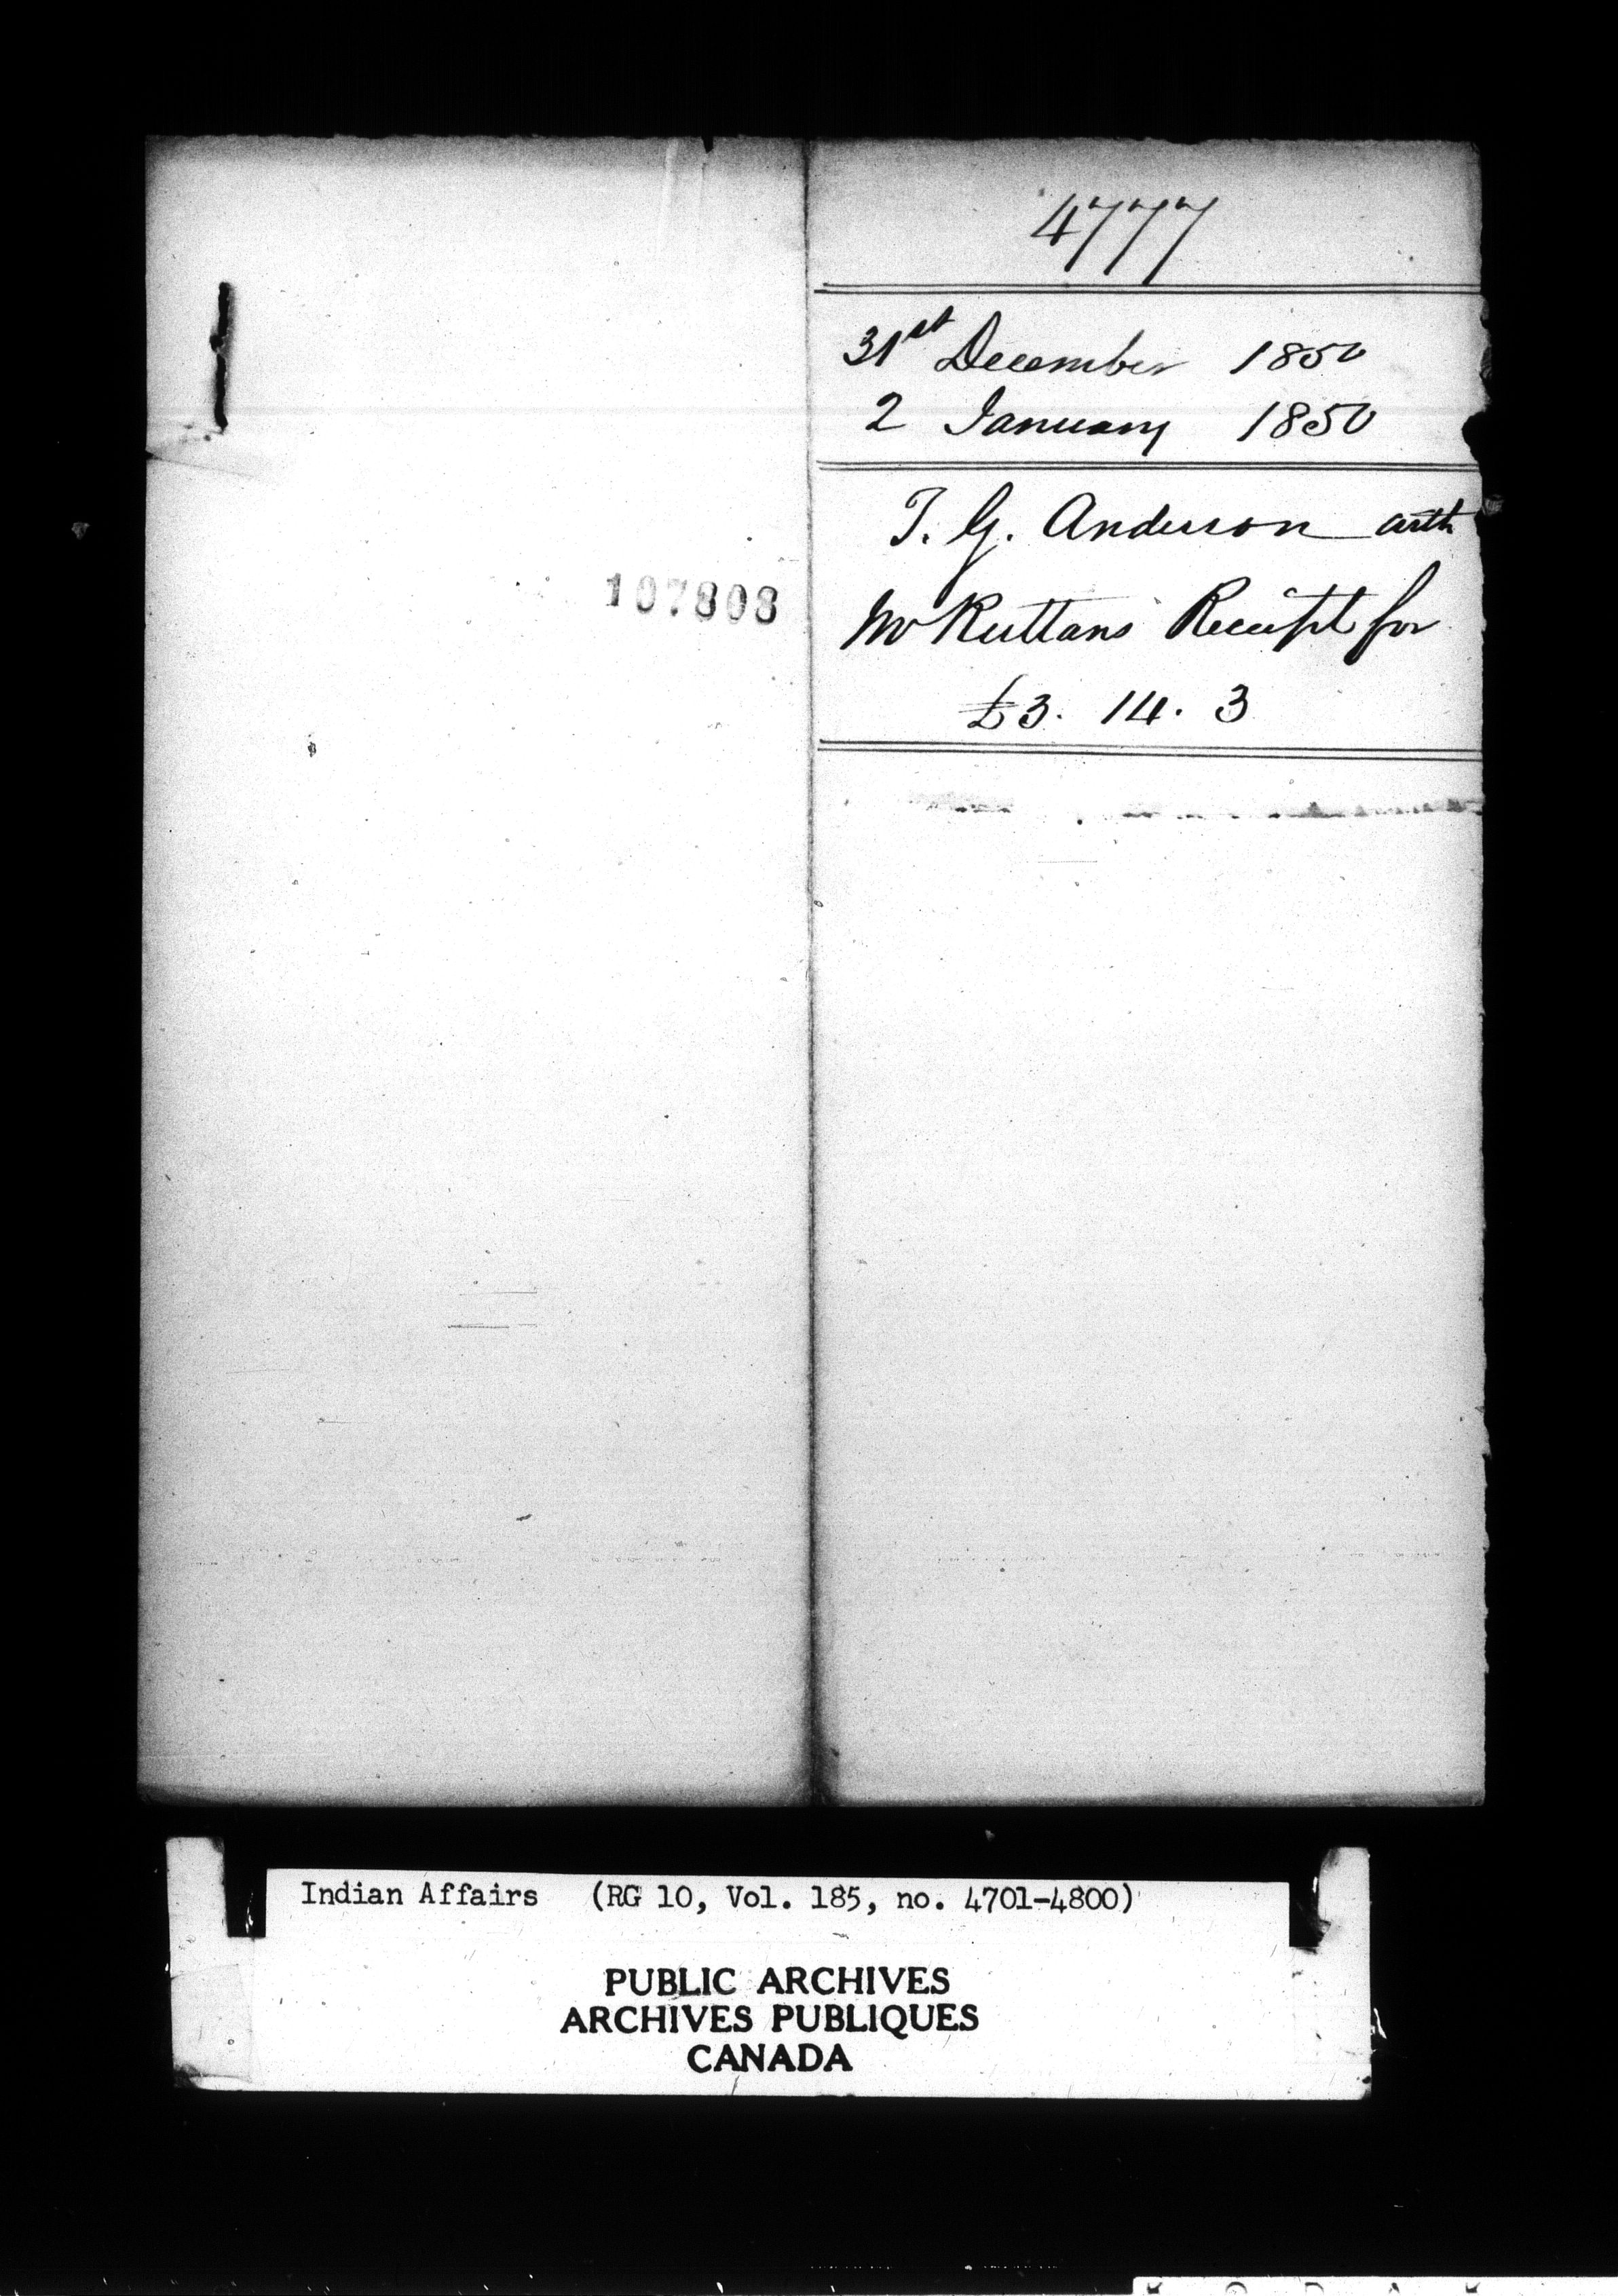 4777
31st December 1850
2 January 1850
T. G. Anderson with
Mr Ruttans Receipt for
£3. 14. 3
107808
Indian Affairs (RG 10, Vol. 185, no. 4701-4800)
PUBLIC ARCHIVES
ARCHIVES PUBLIQUES
CANADA